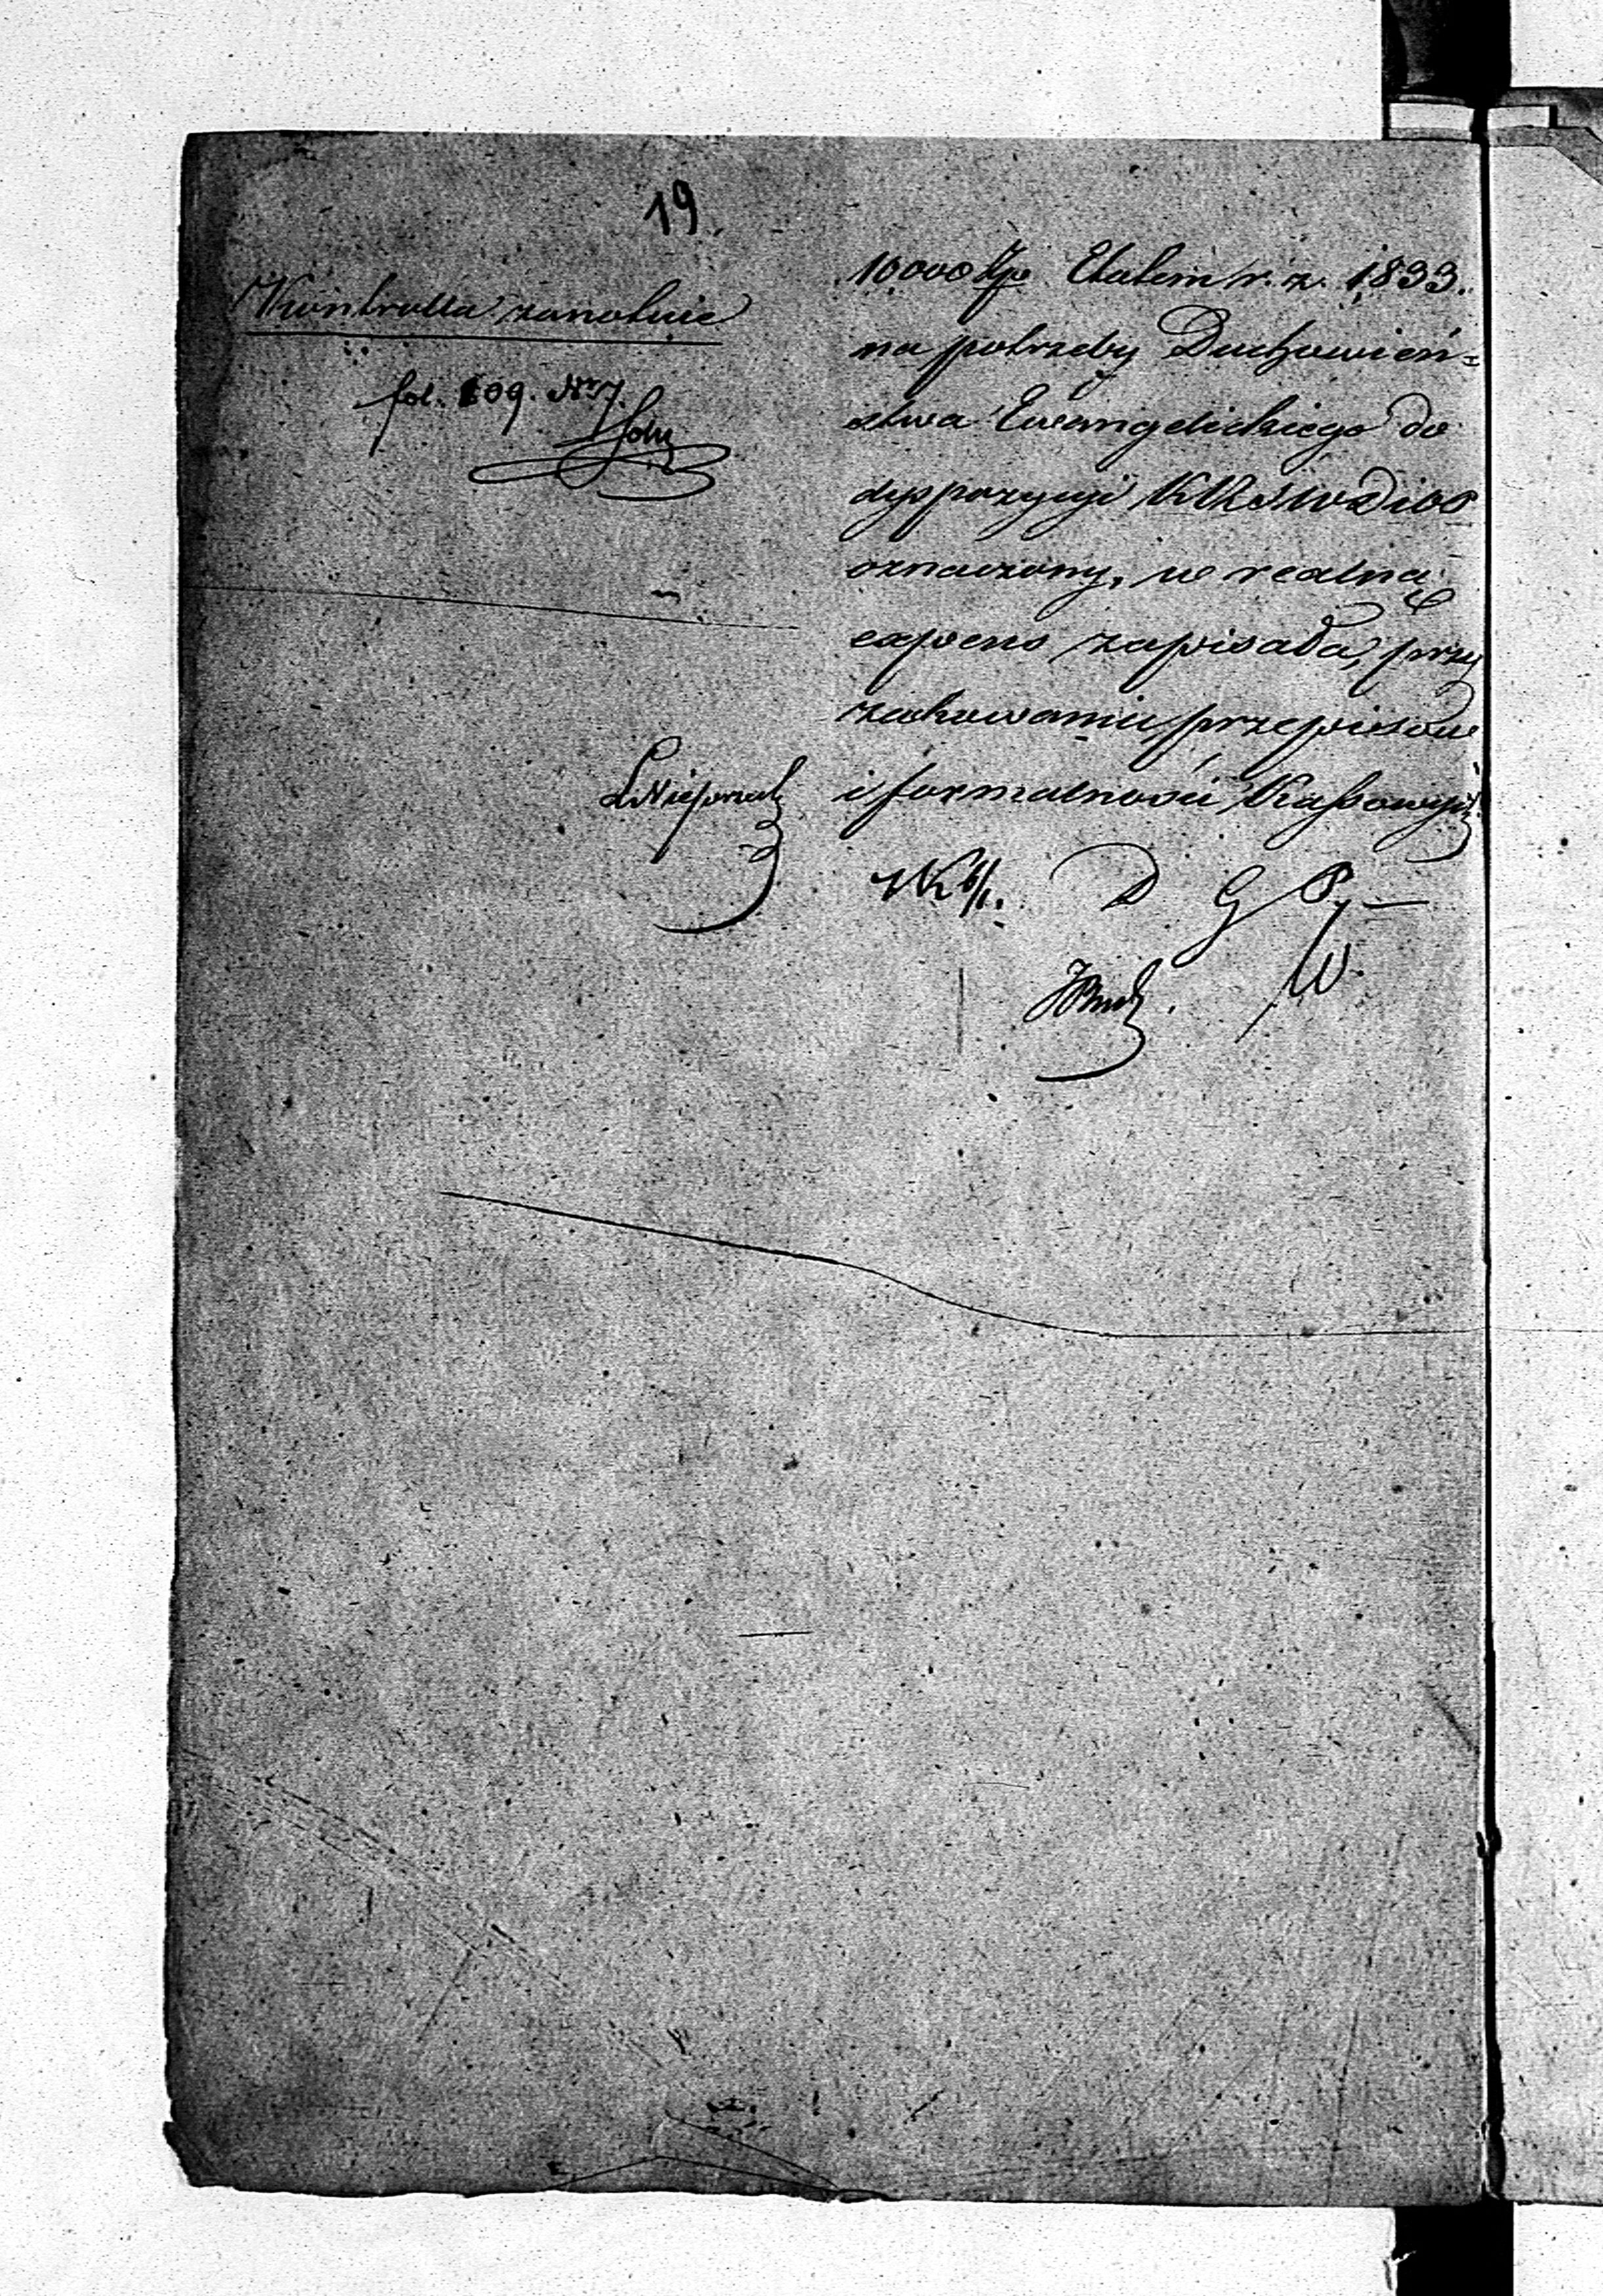 19
Kontrolla zanotuie
fol. 109. Nr 7.
10,000 Złp Etatem r. z. 1833.
na potrzeby Duchowień=
stwa Ewangelickiego do
dyspozycyi KRSWDiOP
oznaczony, w realną
expens zapisała, przy
zachowaniu przepisów
i formalności Kassowych.
D G P.
W